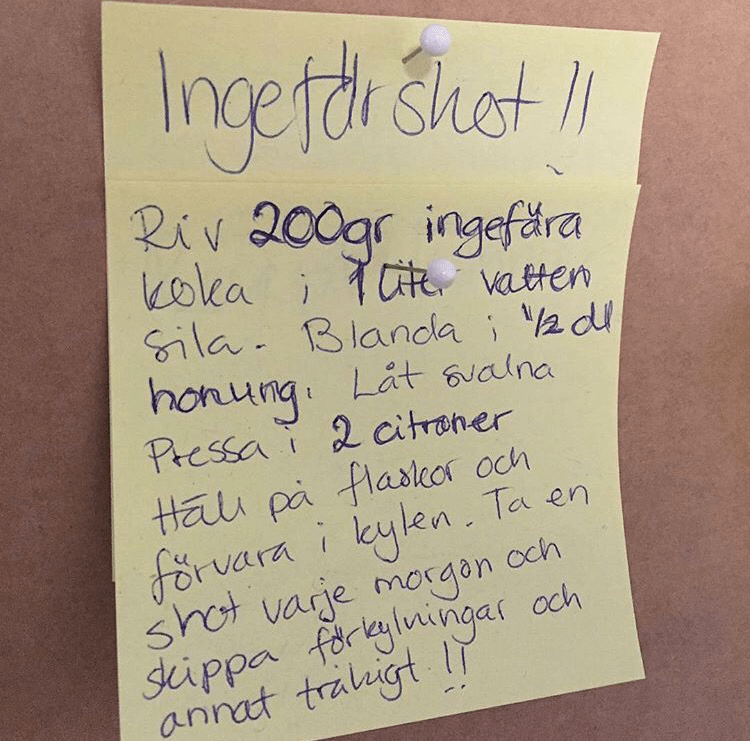 Ingefärshot !!
Riv 200gr ingefära
koka i 1 liter vatten
sila. Blanda i 1/2 dl
honung. Låt svalna
Pressa i 2 citroner
Häll på flaskor och
förvara i kylen. Ta en
shot varje morgon och
skippa förkylningar och
annat tråkigt !!